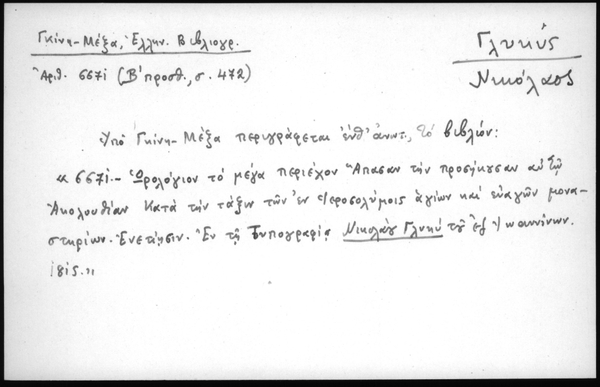 Γκίνη-Μέξα, Ἑλλην. Βιβλιογρ.
Γλυκύς
Ἀριθ. 667i (Β' προσθ., σ. 472)
Νικόλαος
Ὑπὸ Γκίνη-Μέξα περιγράφεται ἐνθ' ἀνωτ., τό βιβλίον:
« 667i.- Ὡρολόγιον τό μέγα περιέχον Ἅπασαν τήν προσήκουσαν αὐτῷ
Ἀκολουθίαν Κατά τήν τάξιν τῶν ἐν Ἱεροσολύμοις ἁγίων καί εὐαγῶν μονα-
στηρίων. Ἐνετίησιν. Ἐν τῇ Τυπογραφίᾳ Νικολάου Γλυκύ τοῦ ἐξ Ἰωαννίνων.